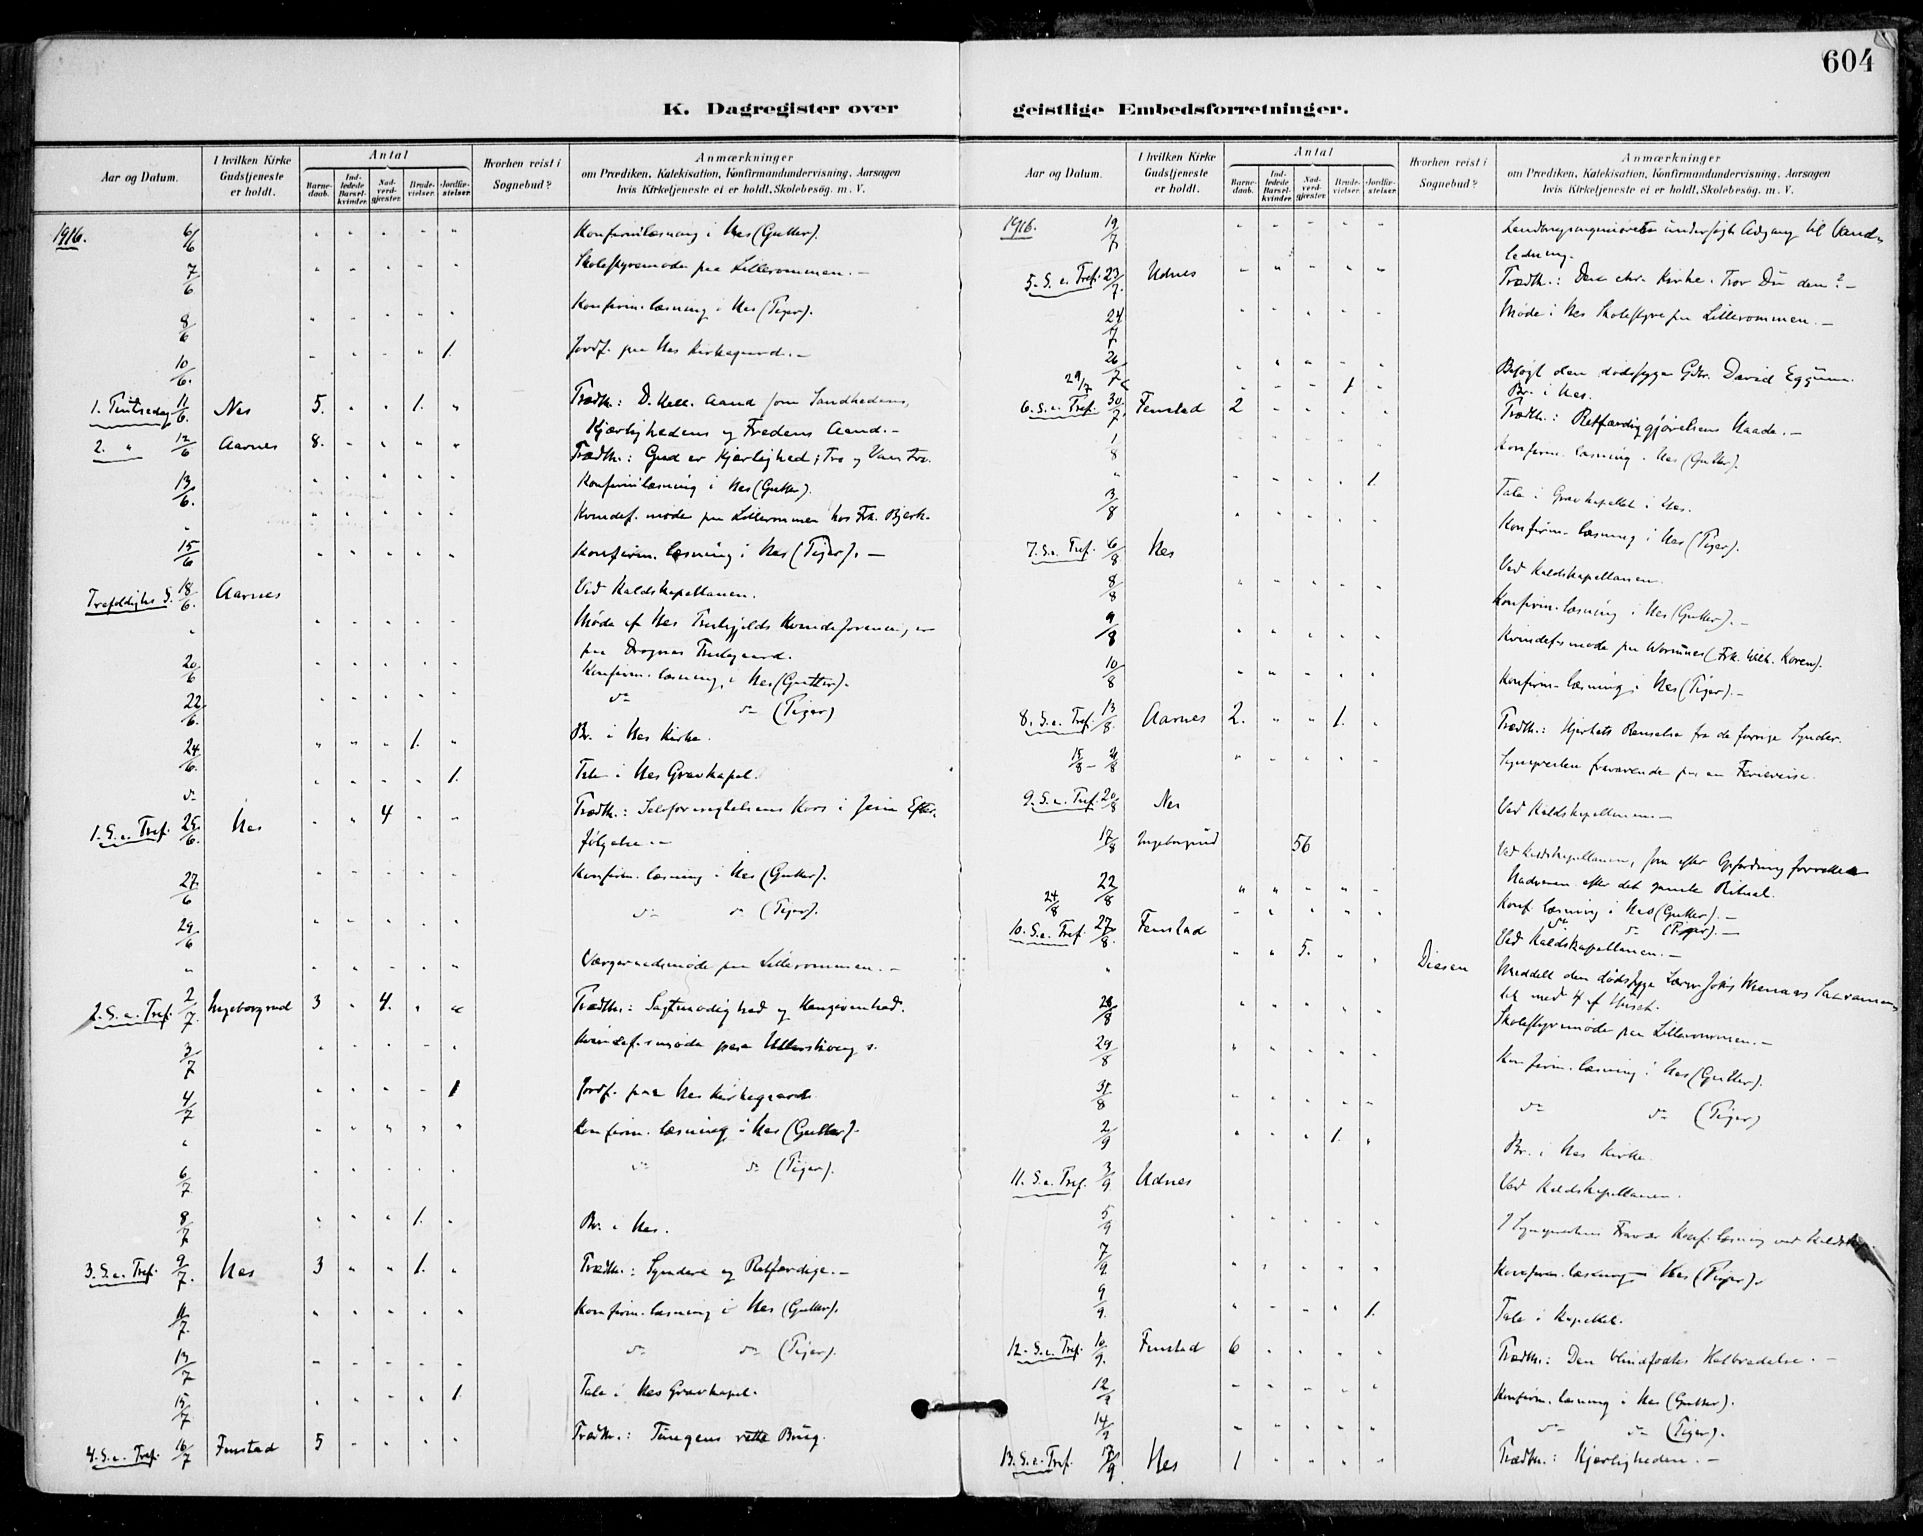 604
K. Dagregister over geistlige Embedsforretninger.
Aar og Datum.
I hvilken Kirke Gudstjeneste er holdt.
Antal
Barnedaab.
Indledede Barselkvinder.
Nadverdgjæster.
Brudevielser.
Jordfæstelser.
Hvorhen reist i Sognebud?
Anmærkninger
om Prædiken, Katekisation, Konfirmandundervisning, Aarsagen
hvis Kirketjeneste ei er holdt, Skolebesøg, m. V.
1916. 6/6 " " " " " Konfirm.læsning i Nes (Gutter).
7/6 " " " " " Skolestyremøde paa Lillerommen. –
8/6 " " " " " Konfirm.læsning i Nes (Piger).
10/6. " " " " 1. Jordf. paa Nes Kirkegaard. –
1. Pintsedag 11/6. Nes 5. " " 1. " Prædk.: D. Hell. Aand som Sandhedens,
Kjærlighedens og Fredens Aand. –
2. " 12/6 Aarnes 8. " " " " Prædk.: Gud er Kjærlighed; Tro og Vantro.
13/6. " " " " " Konfirm.læsning i Nes (Gutter).
" " " " " " Kvindef. møde paa Lillerommen hos Frk. Bjerk.
15/6 " " " " " Konfirm. læsning i Nes (Piger). –
Trefoldighs S. 18/6. Aarnes Ved Kaldskapellanen.
" " " " " " Møde af Nes Kvindeforening
paa Drognes.
20/6 " " " " " Konfirm. læsning i Nes (Gutter).
22/6. " " " " " do do (Piger)
24/6. " " " 1. " Br. i Nes Kirke.
do " " " " 1. Tale i Nes Gravkapel.
1. S. e. Tref. 25/6. Nes " " 4 " " Prædk.: Selvfornegtelsens Kors i Jesu Efter-
følgelse. –
27/6 " " " " " Konfirm. læsning i Nes (Gutter).
29/6 " " " " " do do (Piger).
" " " " " " Værgeraadsmøde paa Lillerommen. –
2. S. e. Tref. 2/7. Ingeborgrud 3 " 4. " " Prædk.: Sagtmodighed og Hengivenhed.
3/7 " " " " " Kvindef.smøde paa
4/7 " " " " 1 Jordf. paa Nes Kirkegaard.
" " " " " " Konfirm. læsning i Nes (Gutter).
6/7 " " " " " do do (Piger).
8/7 " " " 1. " Br. i Nes.
3. S. e. Tref. 9/7. Nes 3 " " 1. " Prædk.: Syndere og Retfærdige. –
11/7. " " " " " Konfirm. læsning i Nes (Gutter).
13/7 " " " " " do do (Piger).
15/7 " " " " 1. Tale i Nes Gravkapel.
4. S. e. Tref. 16/7 Fenstad 5 " " " " Prædk.: Tungens rette Brug.
Aar og Datum.
I hvilken Kirke Gudstjeneste er holdt.
Antal
Barnedaab.
Indledede Barselkvinder.
Nadverdgjæster.
Brudevielser.
Jordfæstelser.
Hvorhen reist i Sognebud?
Anmærkninger
om Prædiken, Katekisation, Konfirmandundervisning, Aarsagen
hvis Kirketjeneste ei er holdt, Skolebesøg, m. V.
1916. 19/7 " " " " " undersøgte Adgang til Vand-
ledning.
5. S. e. Tref. 23/7. Udnes " " " " " Prædk.: Den chr. Kirke. Tror Du den? –
24/7 " " " " " Møde i Nes Skolestyre paa Lillerommen. –
26/7 " " " " " Besøgt den dødssyge Gbr. David
29/7 " " " 1 " Br. i Nes.
6. S. e. Tref. 30/7. Fenstad 2 " " " " Prædk.: Retfærdiggjørelsens Naade. –
1/8 " " " " " Konfirm. læsning i Nes (Gutter).
" " " " " 1. Tale i Gravkapellet i Nes.
3/8 " " " " " Konfirm. læsning i Nes (Piger).
7. S. e. Tref. 6/8 Nes Ved Kaldskapellanen.
8/8 " " " " " Konfirm. læsning i Nes (Gutter). –
9/8 " " " " " Kvindef.smøde paa Wormnes (Frk. Wilh. Koren).
10/8 " " " " " Konfirm. læsning i Nes (Piger). –
8. S. e. Tref. 13/8. Aarnes 2. " " 1. " Prædk.: Hjertets Renselse fra de forrige Synder.
15/8 – 21/8 " " " " " Sognepresten fraværende paa en Feriereise.
9. S. e. Tref. 20/8 Nes Ved Kaldskapellanen –
17/8 Ingeborgrud 56 Ved Kaldskapellanen, som efter Opfordring forrettede
Nadveren efter det gamle Ritual.
22/8 " " " " " Konf. læsning i Nes (Gutter). –
24/8 " " " " " do do (Piger). –
10. S. e. Tref. 27/8. Fenstad Ved Kaldskapellanen. –
" " " 5. " " Diesen Meddelt den dødssyge Sacramen-
tet med 4 af Huset.
28/8 " " " " " Skolestyremøde paa Lillerommen. –
29/8 " " " " " Konfirm. læsning i Nes (Gutter).
31/8 " " " " " do do (Piger)
2/9 " " " 1. " Br. i Nes Kirke.
11. S. e. Tref. 3/9. Udnes Ved Kaldskapellanen.
5/9 " " " " " I Sognepresten Fravær Konf. læsning ved Kaldskap.
7/9 " " " " " Konfirm. læsning i Nes (Piger).
9/9. " " " " 1. Tale i Kapellet.
12. S. e. Tref. 10/9. Fenstad 6 " " " " Prædk.: Den blindfødtes Helbredelse. –
12/9 " " " " " Konfirm. læsning i Nes (Gutter).
14/9 " " " " " do do (Piger).
13. S. e. Tref. 17/9. Nes 1 " " " " Prædk.: Kjærligheden. –